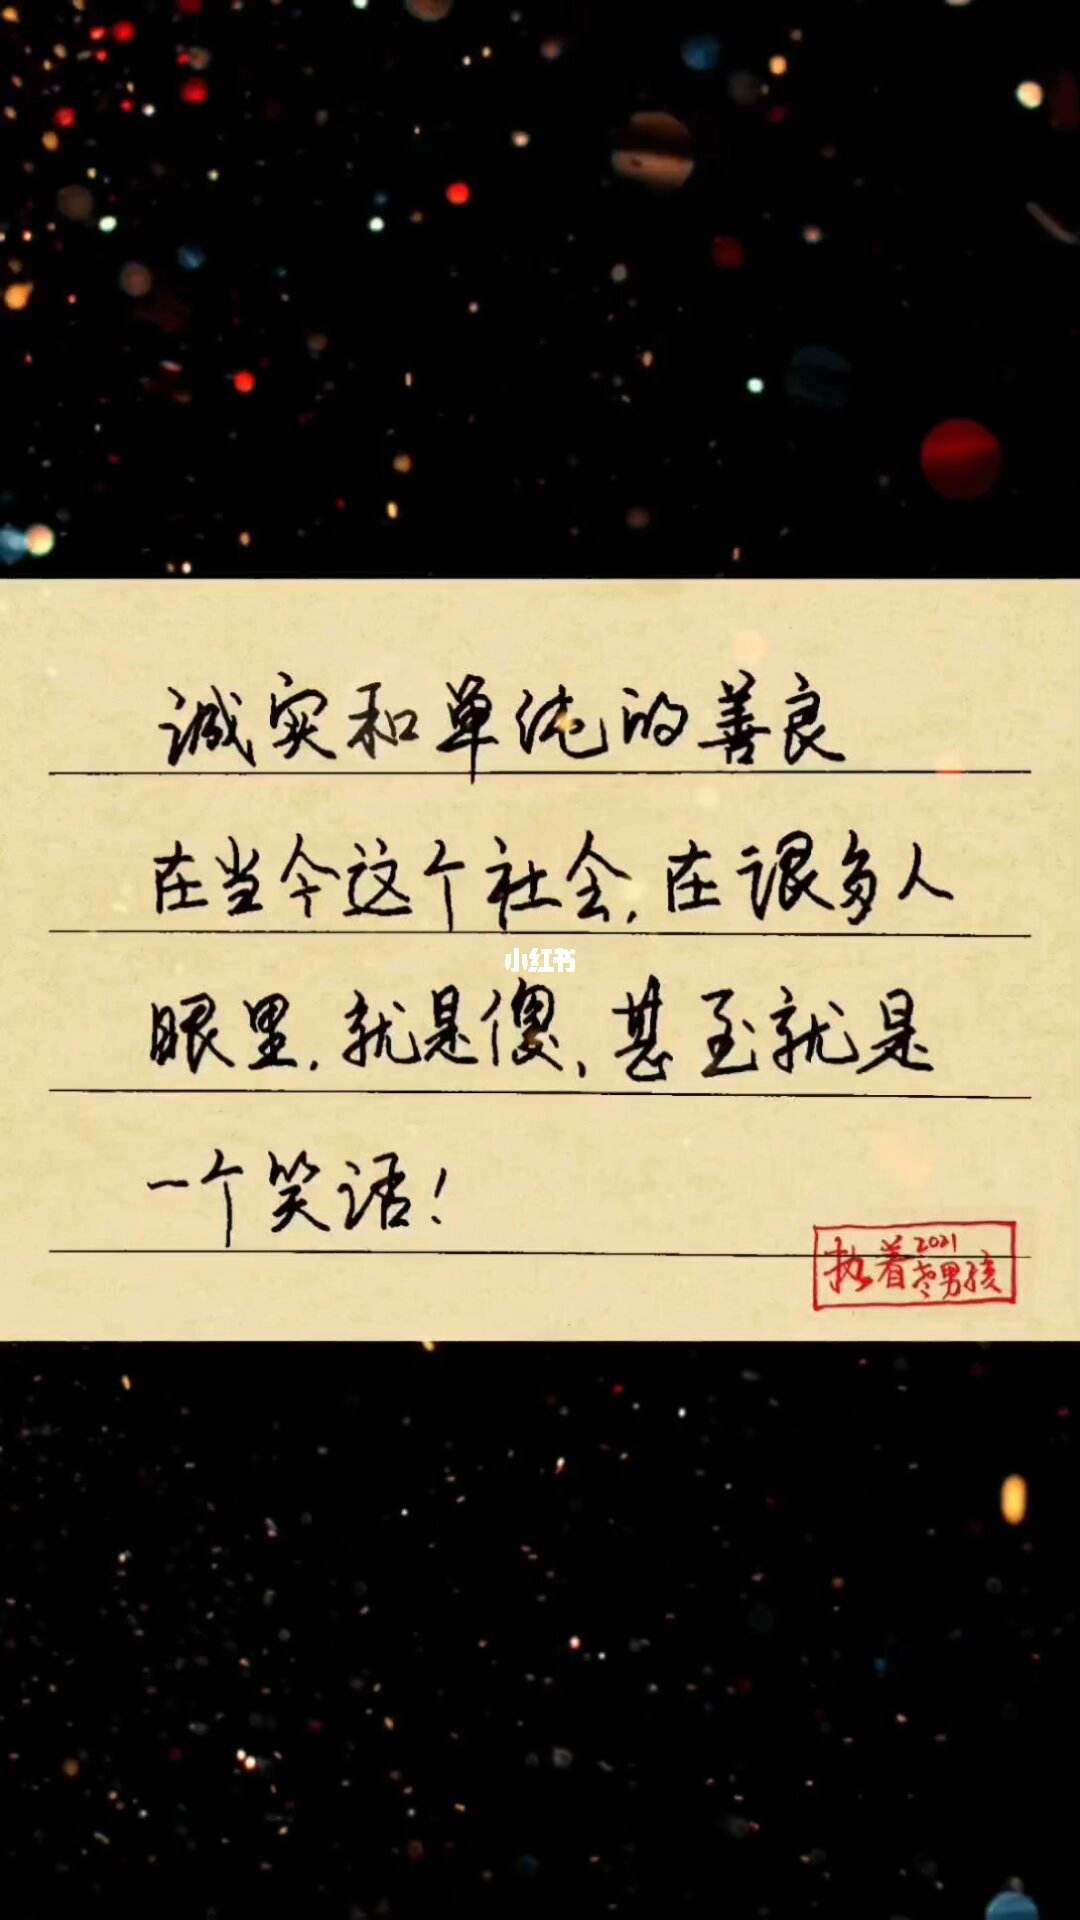 诚实和单纯的善良
在当今这个社会,在很多人
小红书
眼里,就是傻,甚至就是
一个笑话!
2021
执着老男孩